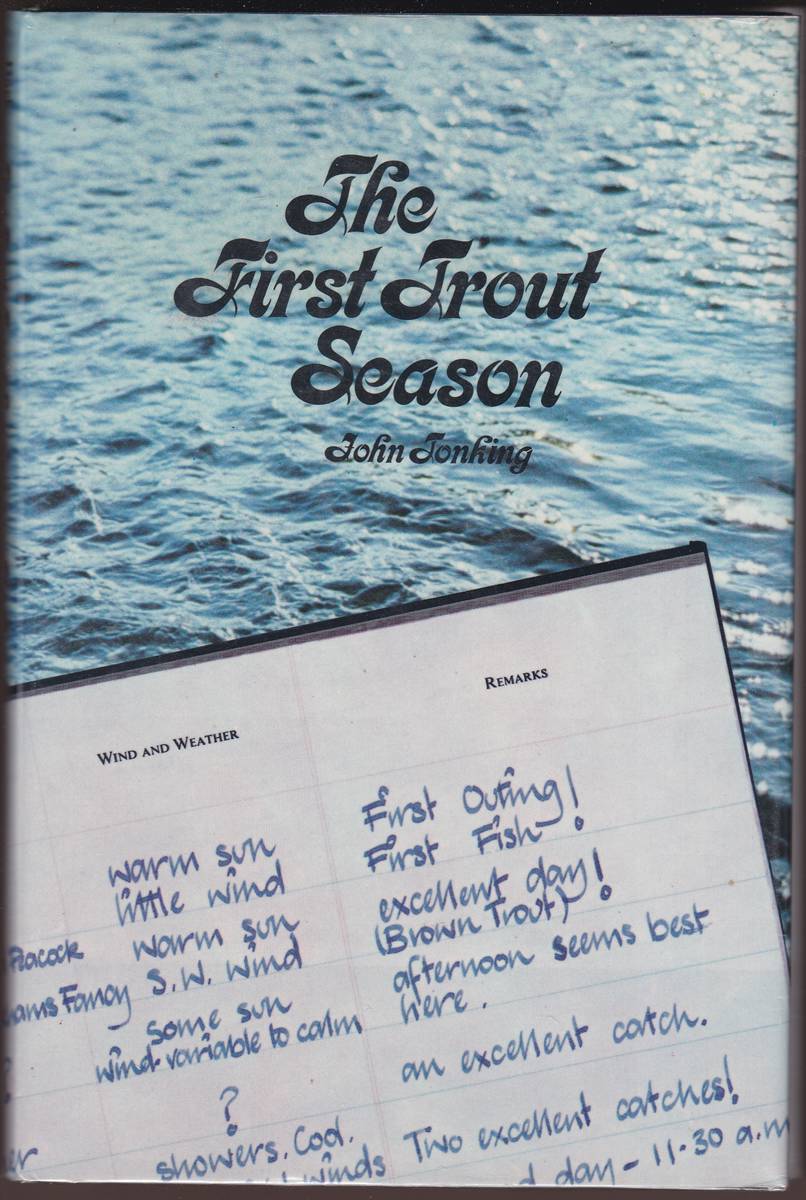 The
First Trout
Season
John Tonking
WIND AND WEATHER
REMARKS
warm sun
little wind
First Outing!
First Fish
Peacock
warm sun
S.W. wind
excellent day!
(Brown Trout)
Fancy
some sun
wind variable to calm
afternoon seems best
here.
?
an excellent catch.
showers. Cool.
winds
Two excellent catches!
day - 11.30 a.m